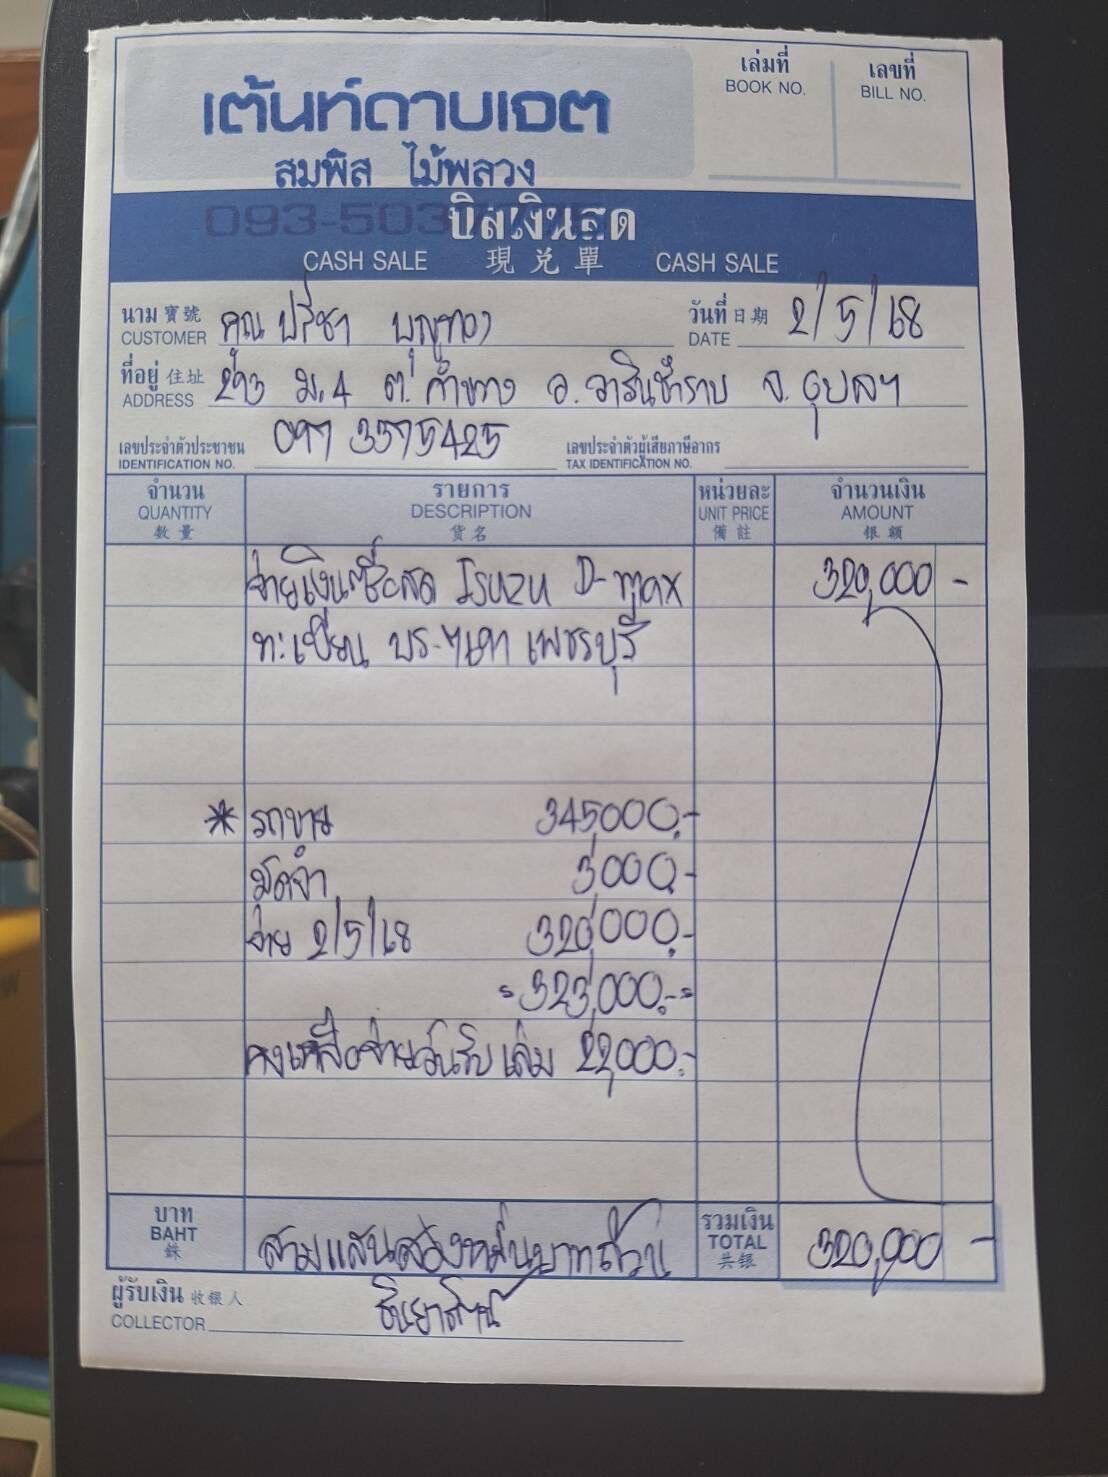 เต้นท์ดาบเจต
สมพิส ไม้พลวง
เล่มที่
BOOK NO.
เลขที่
BILL NO.
บิลเงินสด
CASH SALE 現兌單 CASH SALE
นาม 寶號 คุณ ปรีชา บุญทอง
CUSTOMER
วันที่ 日期 2/5/68
DATE
ที่อยู่ 住址 293 ม.4 ต. คำขวาง อ. วารินชำราบ จ. อุบลฯ
ADDRESS
เลขประจำตัวประชาชน 097 3575425
IDENTIFICATION NO.
เลขประจำตัวผู้เสียภาษีอากร
TAX IDENTIFICATION NO.
จำนวน รายการ หน่วยละ จำนวนเงิน
QUANTITY DESCRIPTION UNIT PRICE AMOUNT
數量 货名 備註 银额
จ่ายเงินซื้อสด Isuzu D-max 320,000 -
ทะเบียน เพชรบุรี
* รถขาย 345000.-
มัดจำ 3,000.-
จ่าย 2/5/68 320,000.-
= 323,000.- =
คงเหลือจ่ายวันรับเล่ม 22,000.-
บาท
BAHT
銖
สามแสนสองหมื่นบาทถ้วน
รวมเงิน
TOTAL
共银
320,000 -
ผู้รับเงิน 收银人
COLLECTOR